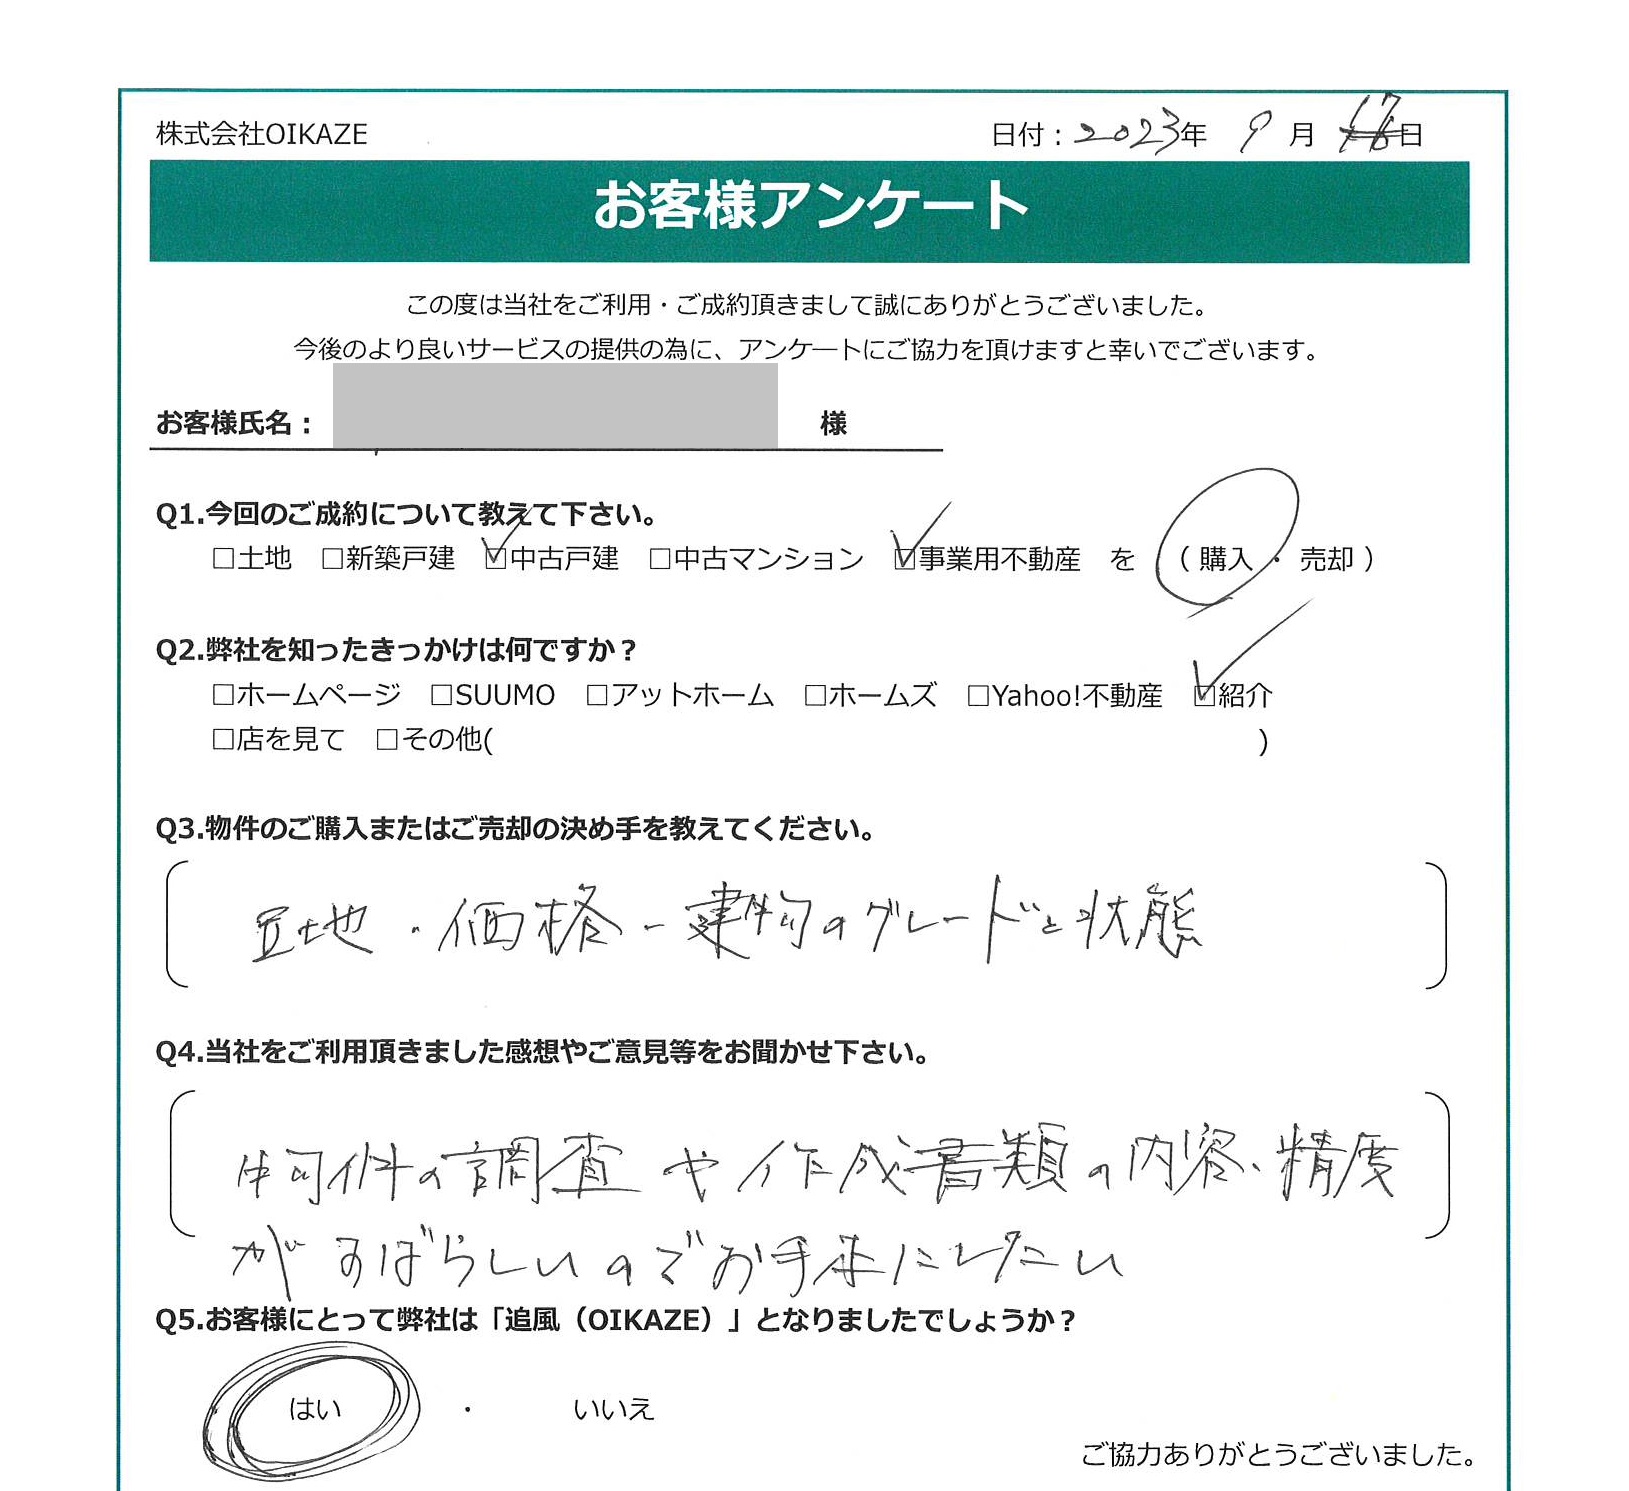 株式会社OIKAZE 日付：2023年 9月 17日
お客様アンケート
この度は当社をご利用・ご成約頂きまして誠にありがとうございました。
今後のより良いサービスの提供の為に、アンケートにご協力を頂けますと幸いでございます。
お客様氏名： 様
Q1.今回のご成約について教えて下さい。
□土地 □新築戸建 ☑中古戸建 □中古マンション ☑事業用不動産 を （ 購入 ・ 売却 ）
Q2.弊社を知ったきっかけは何ですか？
□ホームページ □SUUMO □アットホーム □ホームズ □Yahoo!不動産 ☑紹介
□店を見て □その他( )
Q3.物件のご購入またはご売却の決め手を教えてください。
立地・価格・建物のグレードと状態
Q4.当社をご利用頂きました感想やご意見等をお聞かせ下さい。
物件の調査や作成書類の内容、精度
がすばらしいのでお手本にしたい
Q5.お客様にとって弊社は「追風（OIKAZE）」となりましたでしょうか？
はい ・ いいえ
ご協力ありがとうございました。